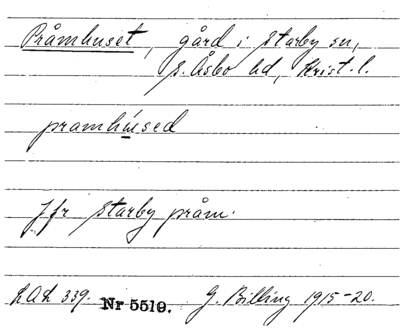 Pråmhuset, gård i Starby sn,
S. Åsbo hd, Krist. l.
pramhúsed
Jfr Starby pråm.
LAL 339. Nr 5519. G. Billing 1915-20.